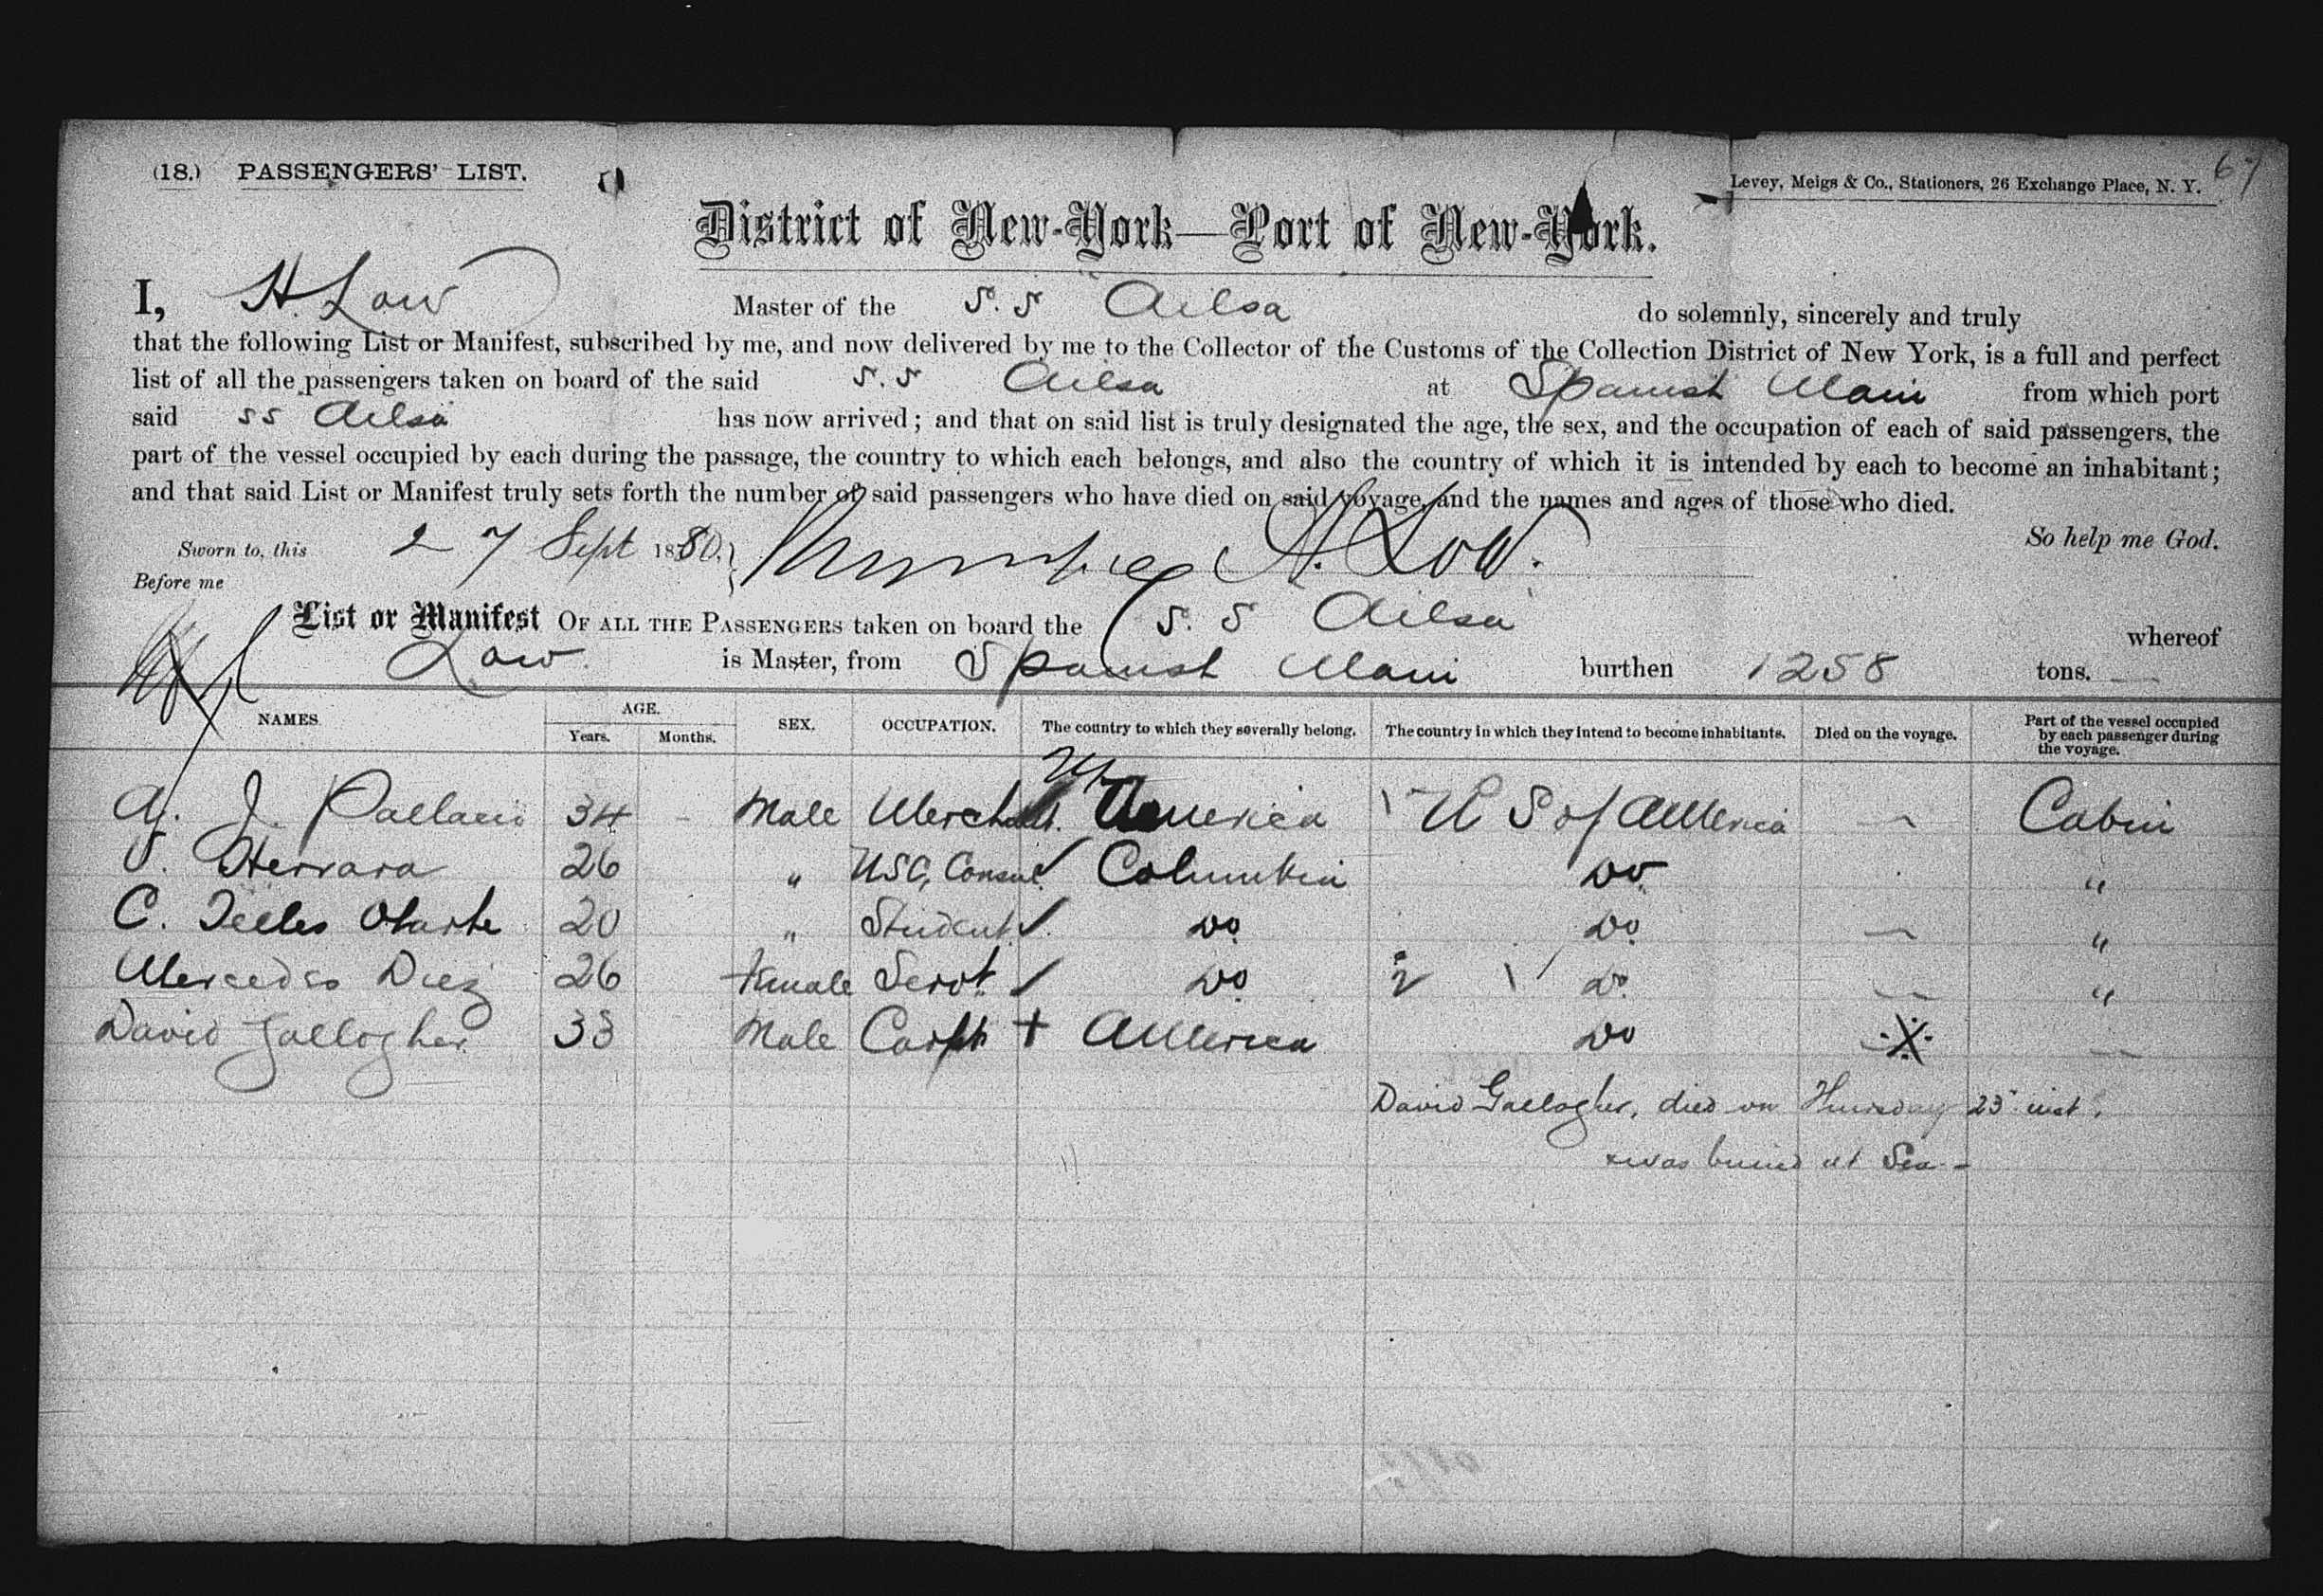 (18.) PASSENGERS' LIST.
Levey, Meigs & Co., Stationers, 26 Exchange Place, N. Y. 67
District of New-York—Port of New-York.
I, H. Low Master of the S. S Ailsa do solemnly, sincerely and truly
that the following List or Manifest, subscribed by me, and now delivered by me to the Collector of the Customs of the Collection District of New York, is a full and perfect
list of all the passengers taken on board of the said S. S Ailsa at Spanish Main from which port
said SS Ailsa has now arrived; and that on said list is truly designated the age, the sex, and the occupation of each of said passengers, the
part of the vessel occupied by each during the passage, the country to which each belongs, and also the country of which it is intended by each to become an inhabitant;
and that said List or Manifest truly sets forth the number of said passengers who have died on said voyage, and the names and ages of those who died.
So help me God.
Sworn to, this 27 Sept 1880. A. Low.
Before me
List or Manifest OF ALL THE PASSENGERS taken on board the S. S Ailsa whereof
Low is Master, from Spanish Main burthen 1258 tons.
NAMES. AGE. Years. Months. SEX. OCCUPATION. The country to which they severally belong. The country in which they intend to become inhabitants. Died on the voyage. Part of the vessel occupied by each passenger during the voyage.
J. Pallacio 34 - Male Merchant. America U S of America — Cabin
Herrara 26 " Consul Columbia Do. "
C. Telles Olarte 20 " Student Do. Do. — "
Mercedes Diez 26 female Servt. Do. Do. — "
David Gallogher 33 Male Carptr + America Do X —
David Gallogher, died on Thursday 23d inst.
& was buried at Sea -